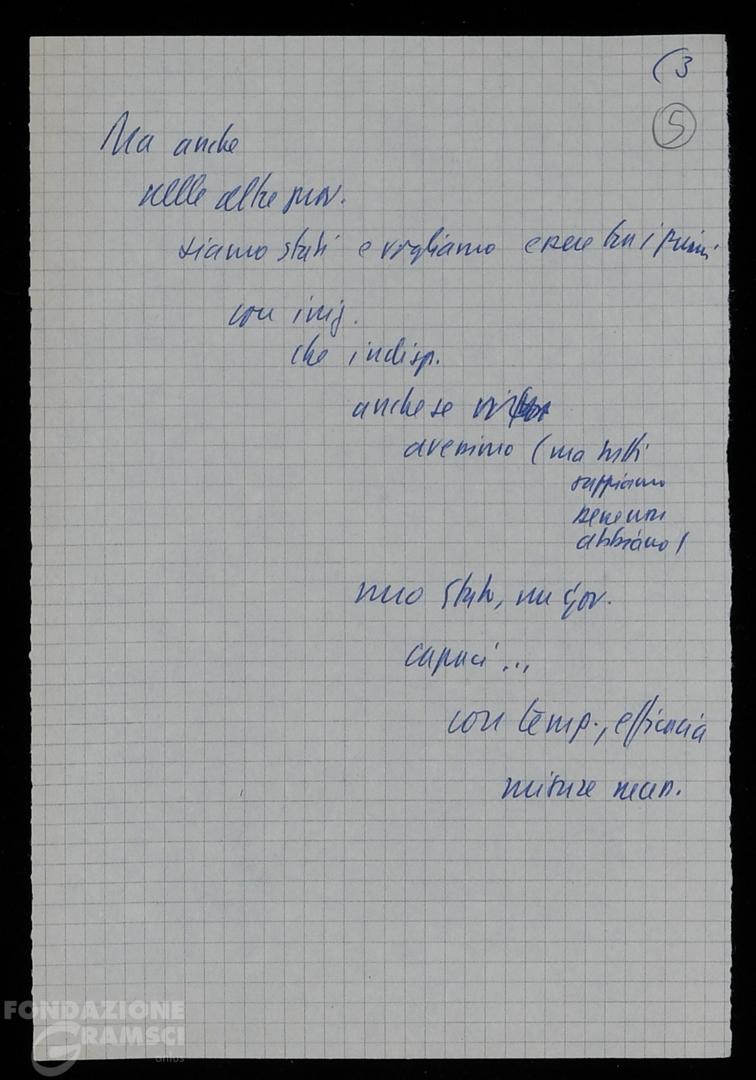 (3
5
Ma anche
nelle altre prov.
siamo stati e vogliamo essere tra i primi
con iniz.
che indisp.
anche se
avessimo (ma tutti
sappiamo
che non
abbiamo)
uno Stato, un gov.
capaci...
con temp., efficacia
misure necess.
FONDAZIONE
GRAMSCI
onlus